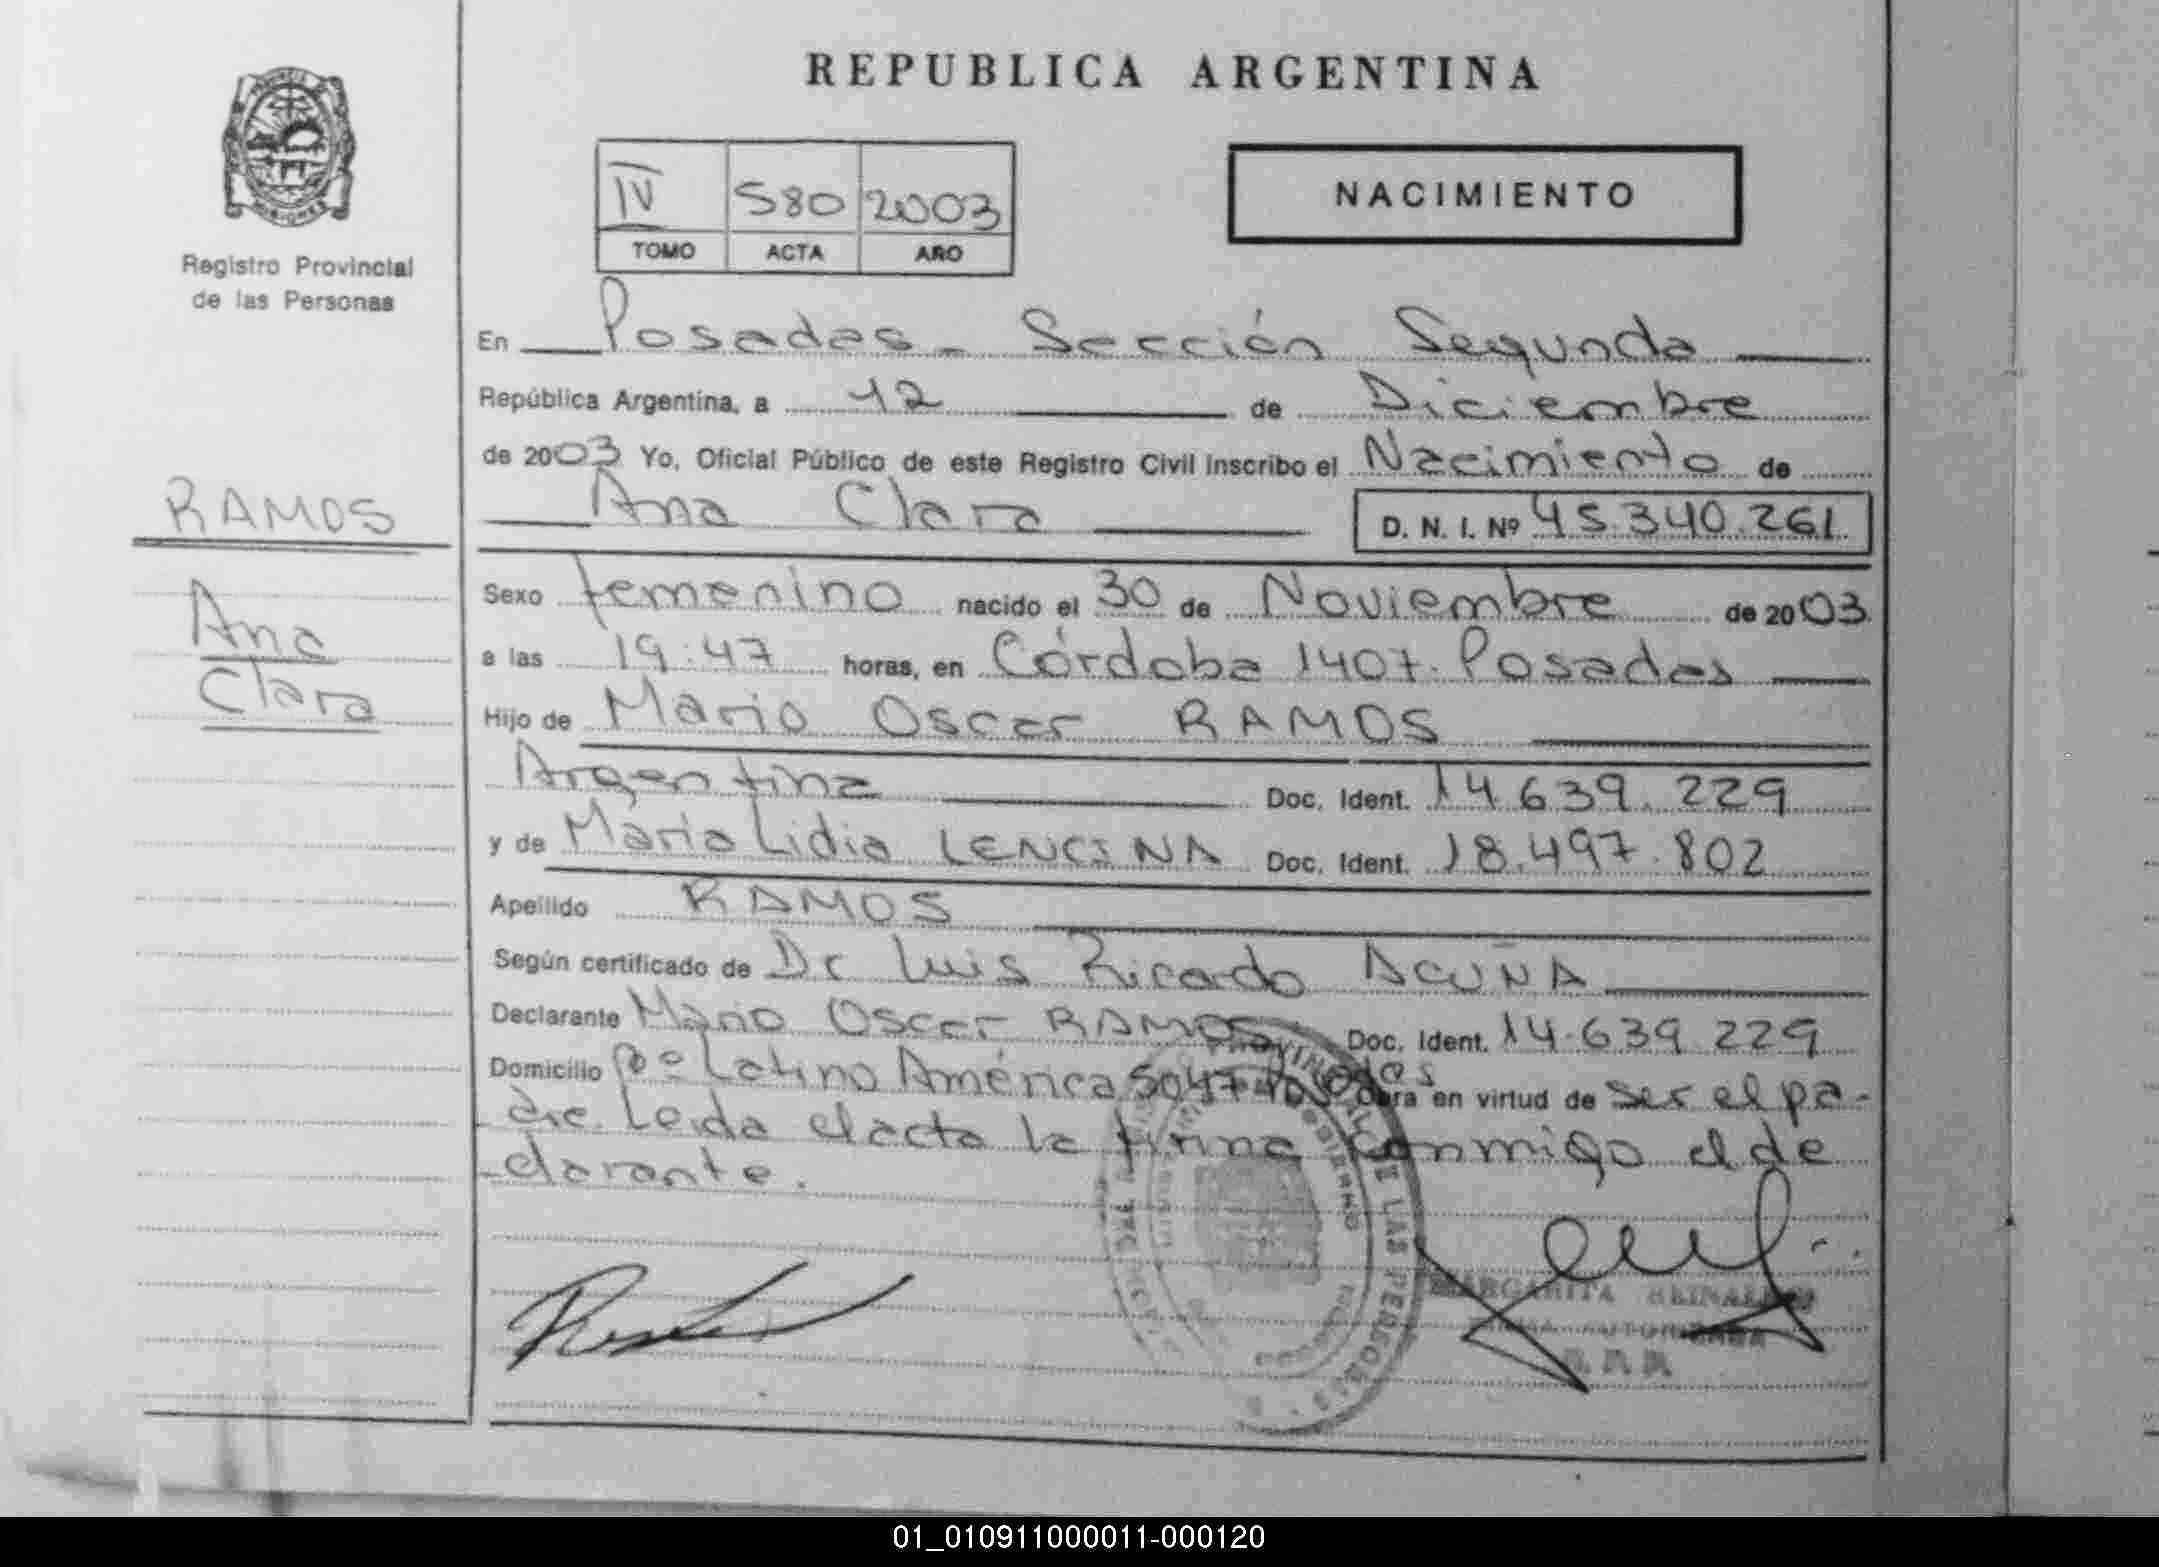 REPUBLICA ARGENTINA
NACIMIENTO
IV 580 2003
TOMO ACTA AÑO
Registro Provincial
de las Personas
En Posadas - Sección Segunda
República Argentina, a 12 de Diciembre
de 2003 Yo, Oficial Público de este Registro Civil inscribo el Nacimiento de
Ana Clara D. N. I. Nº 45.340.261
RAMOS
Ana
Clara
Sexo femenino nacido el 30 de Noviembre de 2003
a las 19:47 horas, en Córdoba 1407. Posadas
Hijo de Mario Oscar RAMOS
Argentina Doc. Ident. 14.639.229
y de María Lidia LENCINA Doc. Ident. 18.497.802
Apellido RAMOS
Según certificado de Dr Luis Ricardo ACUÑA
Declarante Mario Oscar RAMOS Doc. Ident. 14.639.229
Domicilio Bº Latino América 5047 Posadas Obra en virtud de ser el pa-
dre. Leida el acta la firma conmigo el de
clarante.
PROVINCIAL DE LAS PERSONAS
MARGARITA
FIRMA AUTORIZADA
R. P. P.
01_010911000011-000120